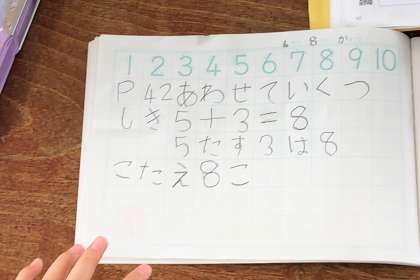 6 8 が
1 2 3 4 5 6 7 8 9 10
P 42 あわせていくつ
しき 5+3=8
5たす3は8
こたえ8こ